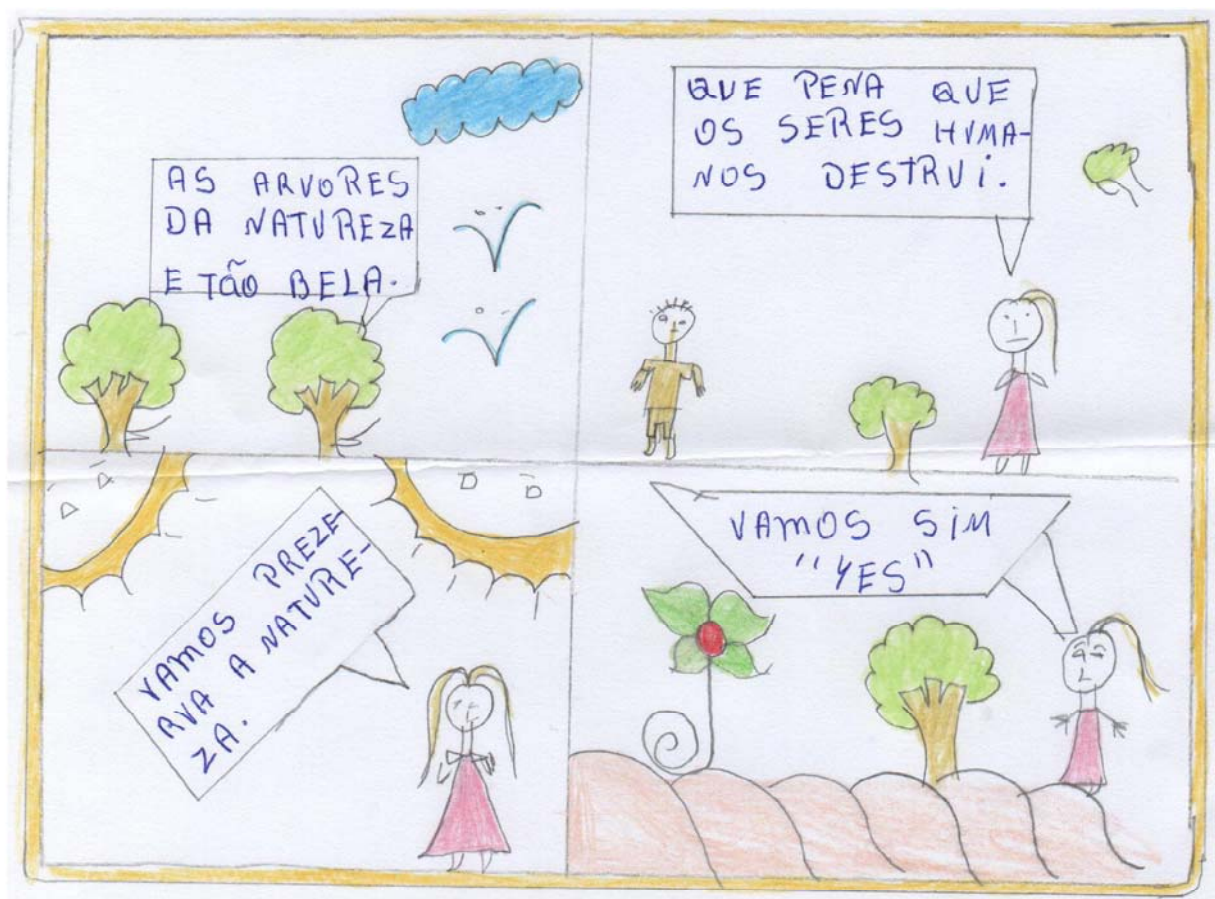 AS ARVORES
DA NATUREZA
E TÃO BELA.
QUE PENA QUE
OS SERES HUMA-
NOS DESTRUI.
VAMOS PREZE-
RVA A NATURE-
ZA.
VAMOS SIM
"YES"